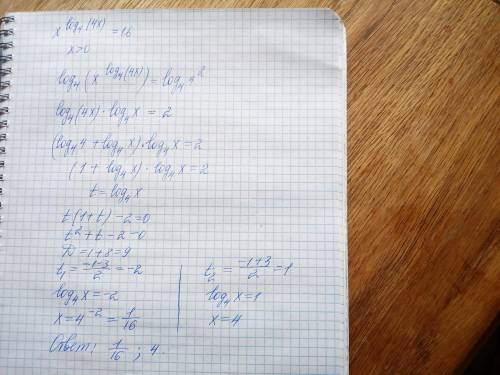 x^log₄(4x) = 16
x>0
log₄(x^log₄(4x)) = log₄4²
log₄(4x)·log₄x = 2
(log₄4 + log₄x)·log₄x = 2
(1 + log₄x)·log₄x = 2
t = log₄x
t(1+t) - 2 = 0
t² + t - 2 = 0
D = 1 + 8 = 9
t₁ = (-1-3)/2 = -2
log₄x = -2
x = 4⁻² = 1/16
t₂ = (-1+3)/2 = 1
log₄x = 1
x = 4
Ответ: 1/16 ; 4.